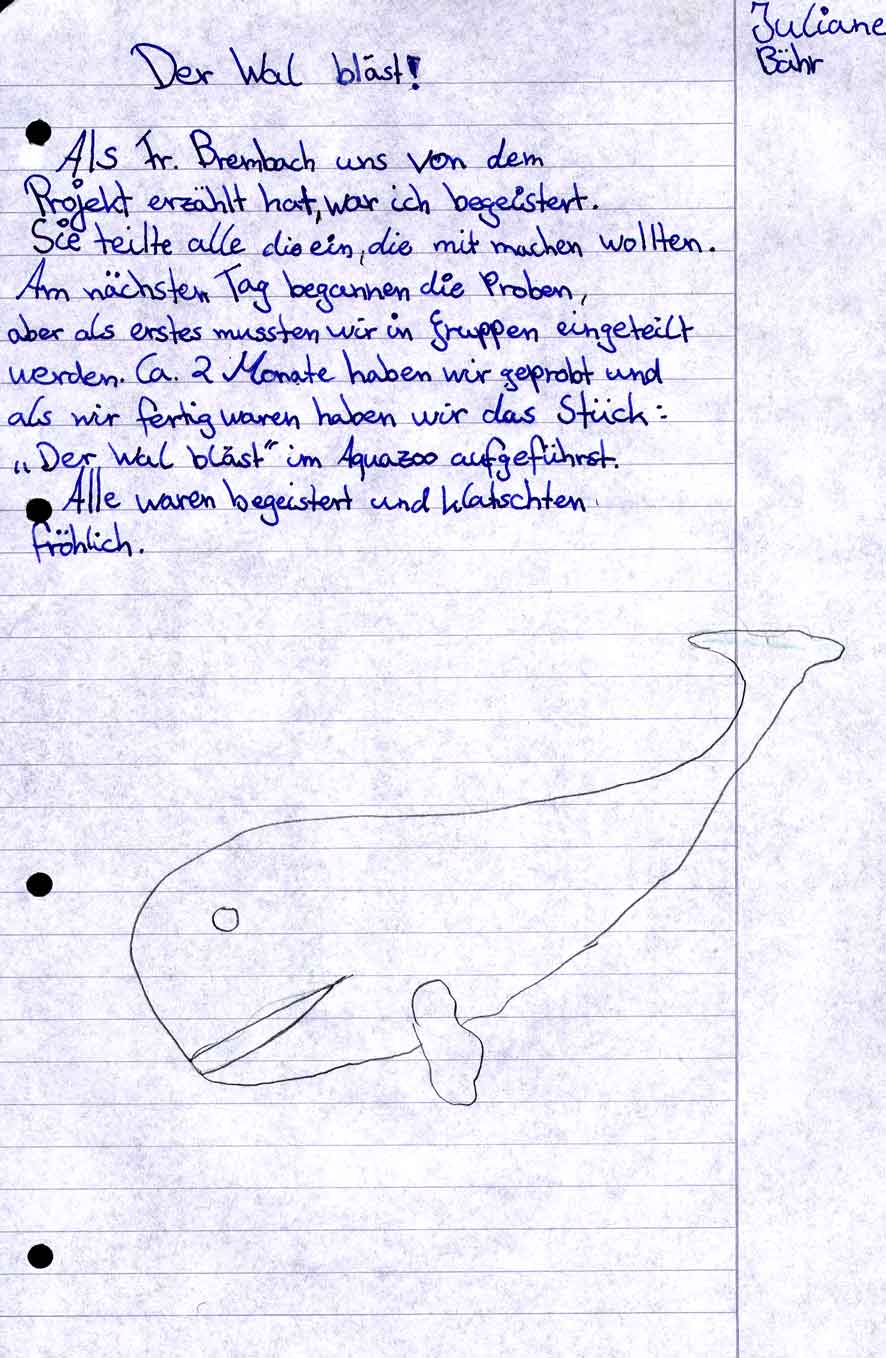 Juliane
Bähr
Der Wal bläst!
Als Fr. Brembach uns von dem
Projekt erzählt hat, war ich begeistert.
Sie teilte alle die ein, die mit machen wollten.
Am nächsten Tag begannen die Proben,
aber als erstes mussten wir in Gruppen eingeteilt
werden. Ca. 2 Monate haben wir geprobt und
als wir fertig waren haben wir das Stück:
„Der Wal bläst“ im Aquazoo aufgeführt.
Alle waren begeistert und klatschten
fröhlich.